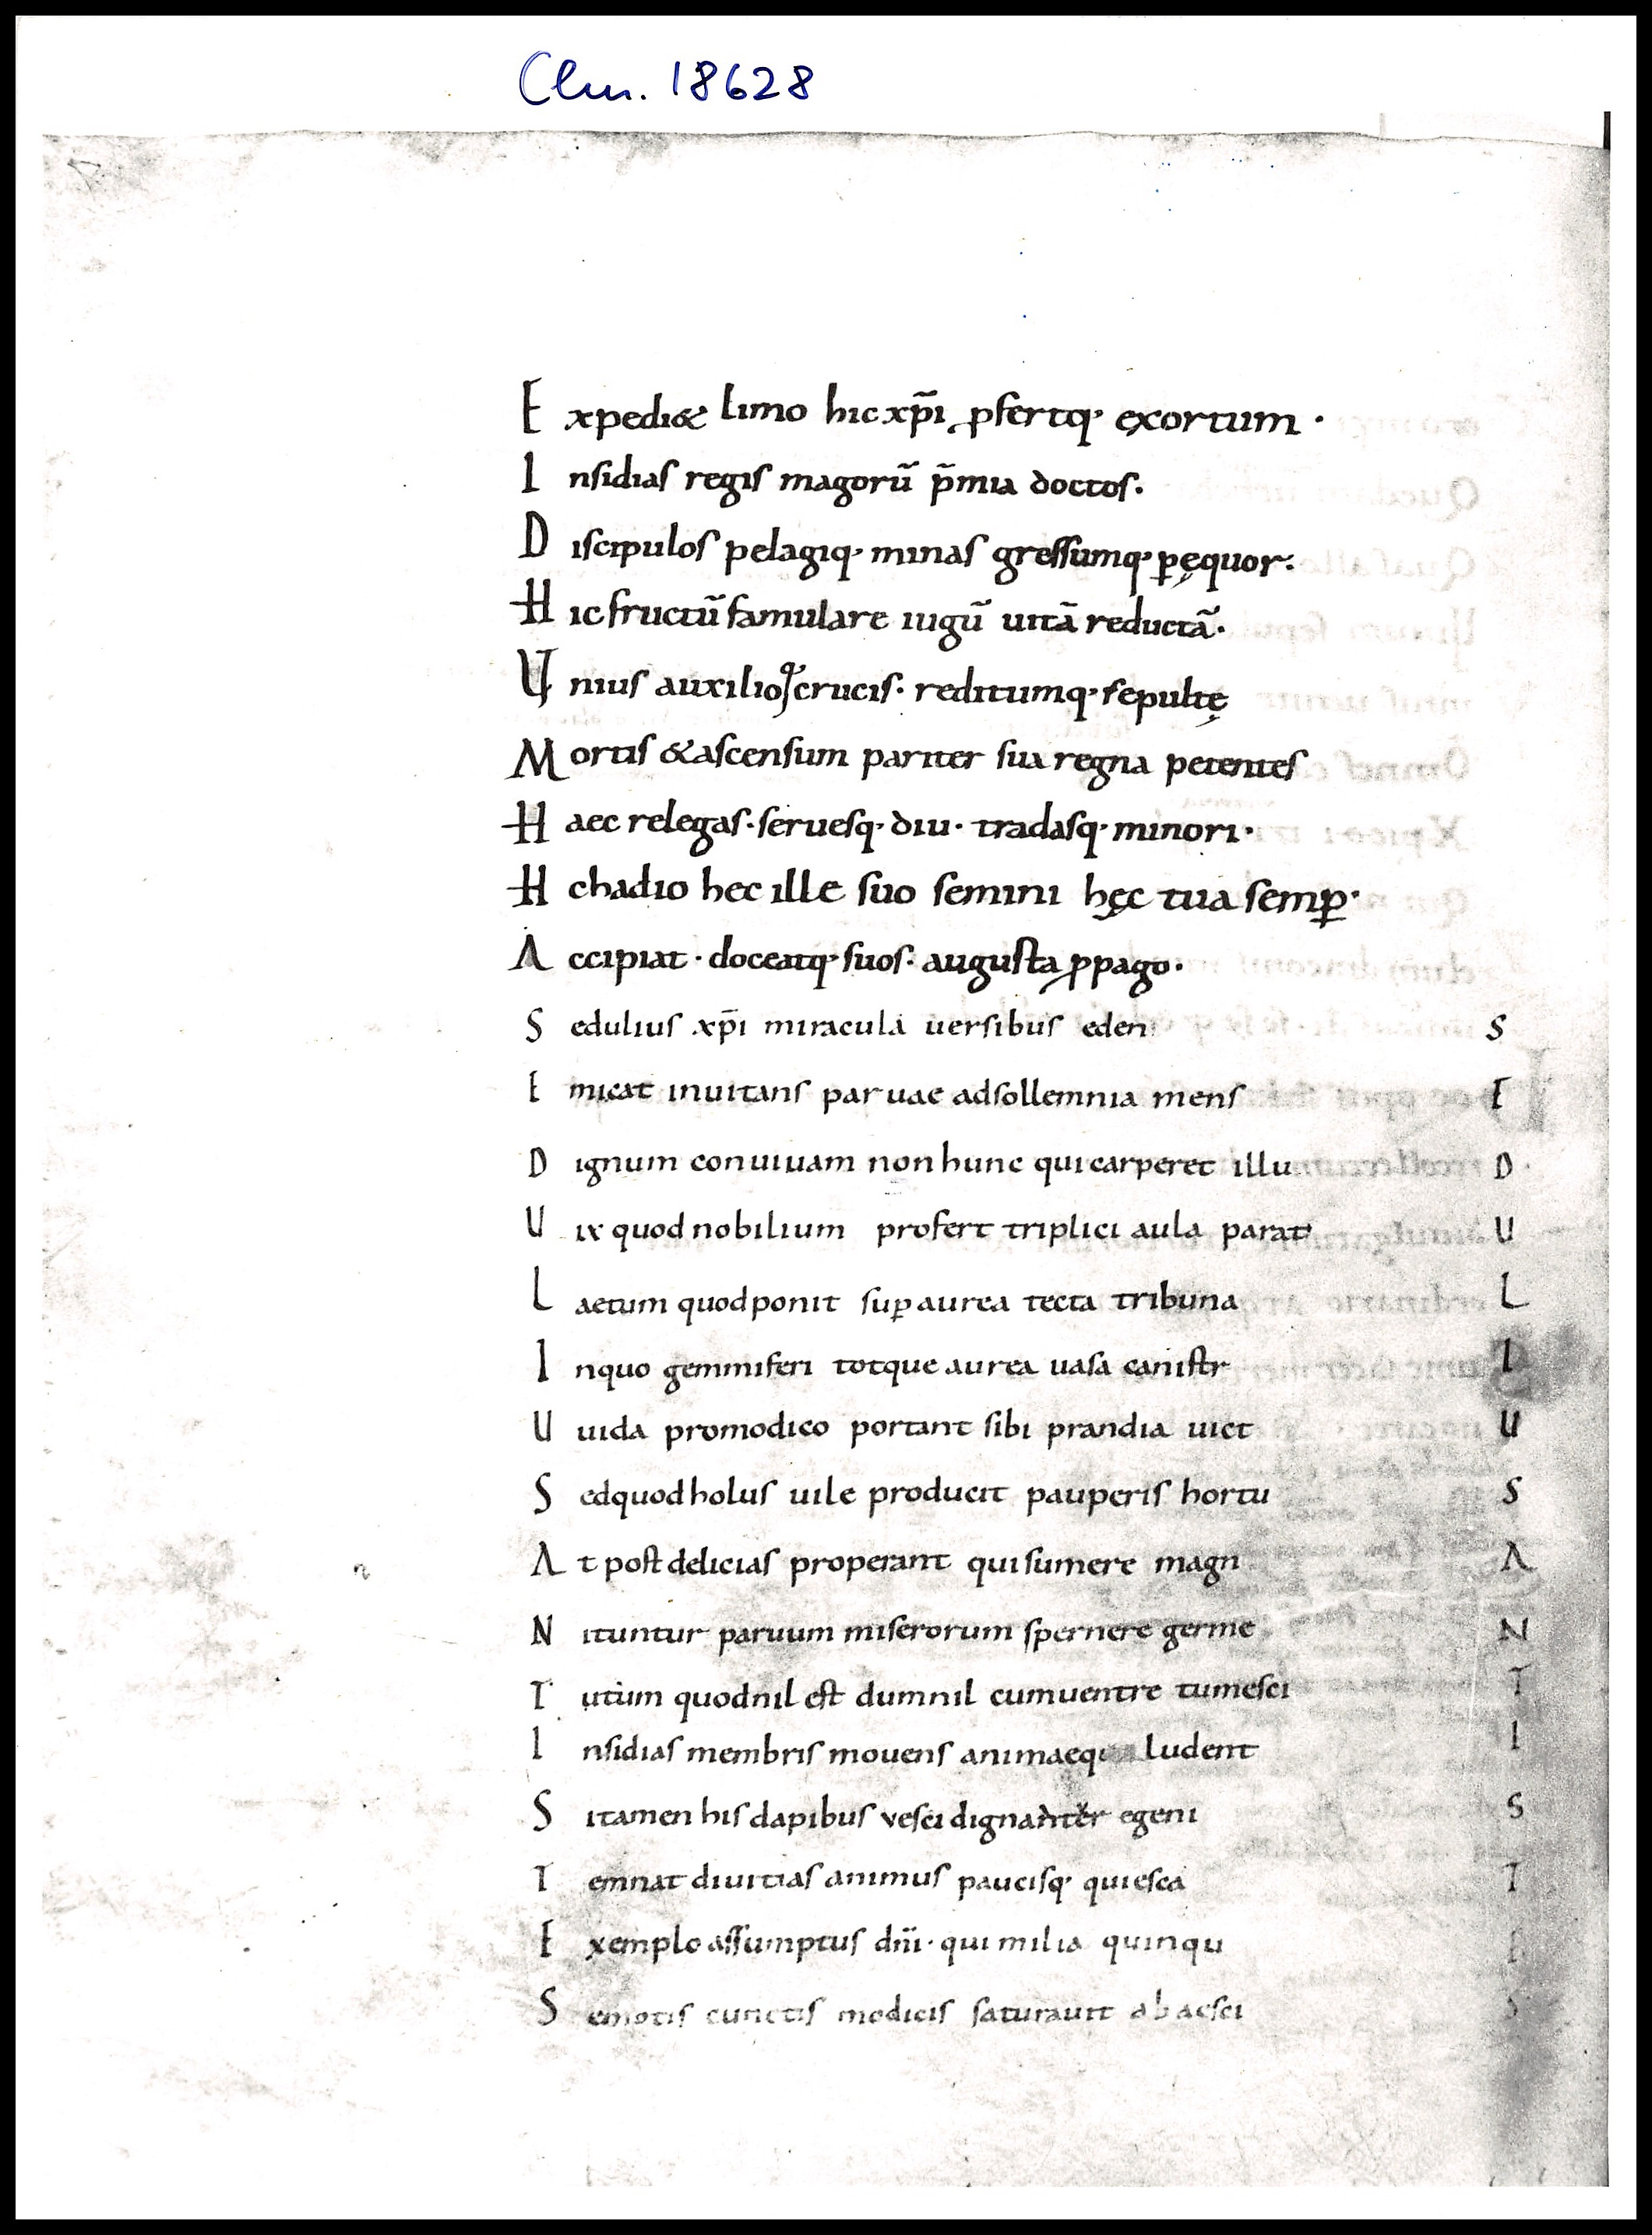 Clm. 18628
Expedi& limo hic xp̄i ꝓfertq· exortum ·
Insidias regis magorū p̄mia doctos.
Discipulos pelagiq· minas gressumq· ꝑęquor.
Hic fructū famulare iugū uitā reductā.
Unius auxilioq crucis· reditumq· sepultę
Mortis &ascensum pariter sua regna petentes
Haec relegas· seruesq· diu· tradasq· minori·
Hchadio hec ille suo semini hęc tua semꝑ·
Accipiat· doceatq· suos· augusta ꝓpago·
Sedulius xp̄i miracula uersibus eden S
Emicat inuitans paruae adsollemnia mens E
Dignum conuiuam non hunc qui carperet illu D
Uix quod nobilium profert triplici aula parat U
Laetum quod ponit suꝑ aurea tecta tribuna L
Inquo gemmiferi totque aurea uasa canistr I
Uuida promodico portant sibi prandia uict U
Sedquod holus uile producit pauperis hortu S
At post delicias properant qui sumere magn A
Nituntur paruum miserorum spernere germe N
Tutum quodnil est dumnil cumuentre tumesci T
Insidias membris mouens animaeq ludent I
Sitamen his dapibus vesci dignanter egeni S
Temnat diuitias animus paucisq· quiesca T
Exemplo assumptus dn̄i· qui milia quinqu E
Semotis cunctis modicis saturauit ab aesci S